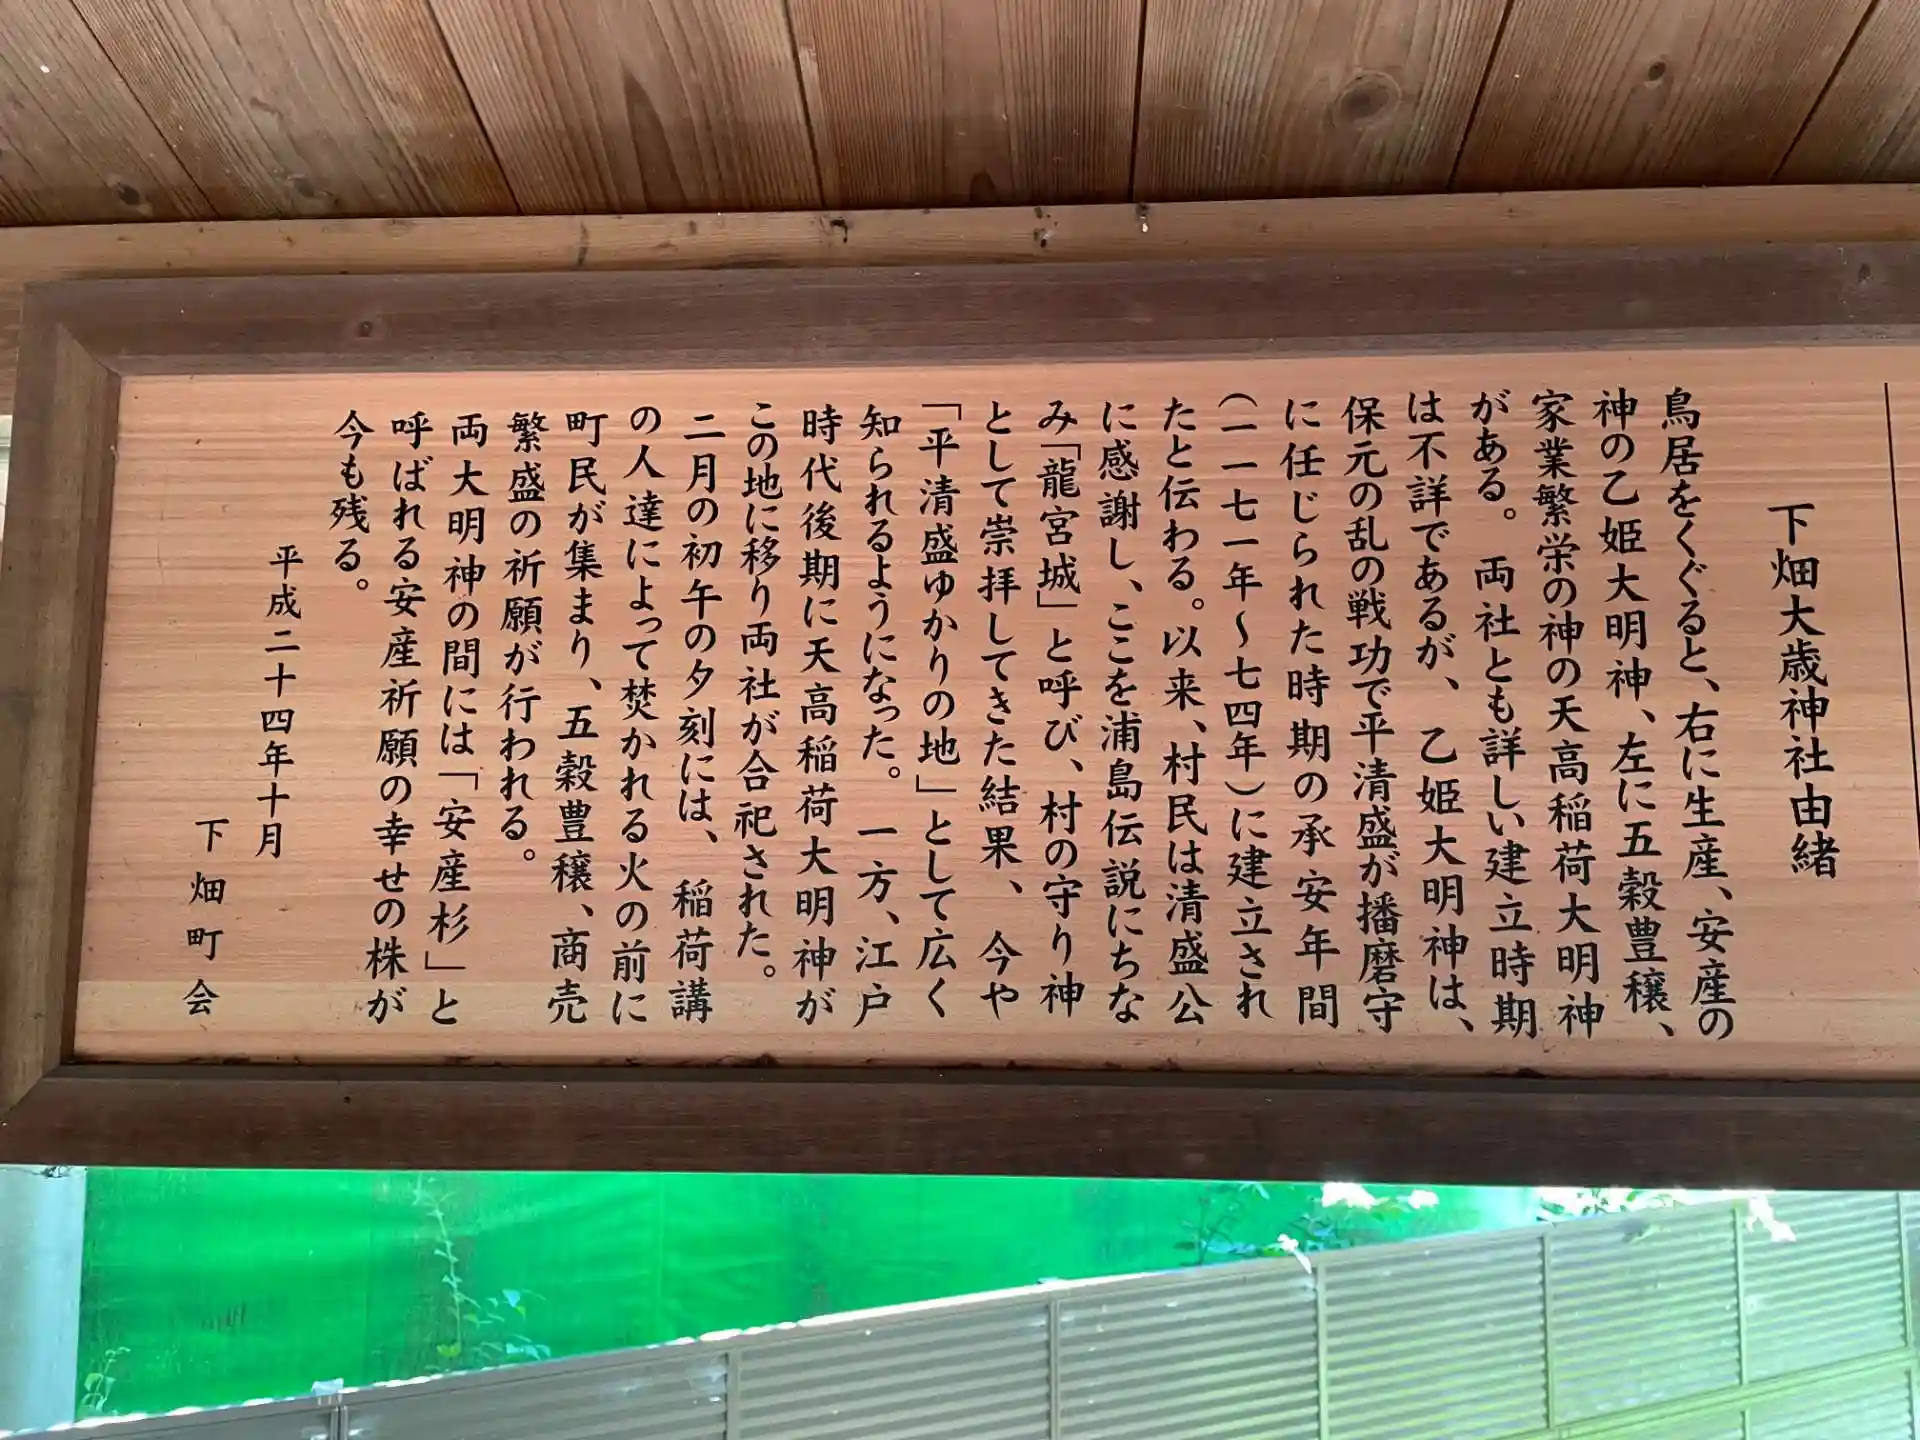 下畑大歳神社由緒
鳥居をくぐると、右に生産、安産の
神の乙姫大明神、左に五穀豊穣、
家業繁栄の神の天高稲荷大明神
がある。両社とも詳しい建立時期
は不詳であるが、乙姫大明神は、
保元の乱の戦功で平清盛が播磨守
に任じられた時期の承安年間
（一一七一年～七四年）に建立され
たと伝わる。以来、村民は清盛公
に感謝し、ここを浦島伝説にちな
み「龍宮城」と呼び、村の守り神
として崇拝してきた結果、今や
「平清盛ゆかりの地」として広く
知られるようになった。一方、江戸
時代後期に天高稲荷大明神が
この地に移り両社が合祀された。
二月の初午の夕刻には、稲荷講
の人達によって焚かれる火の前に
町民が集まり、五穀豊穣、商売
繁盛の祈願が行われる。
両大明神の間には「安産杉」と
呼ばれる安産祈願の幸せの株が
今も残る。
平成二十四年十月
下畑町会